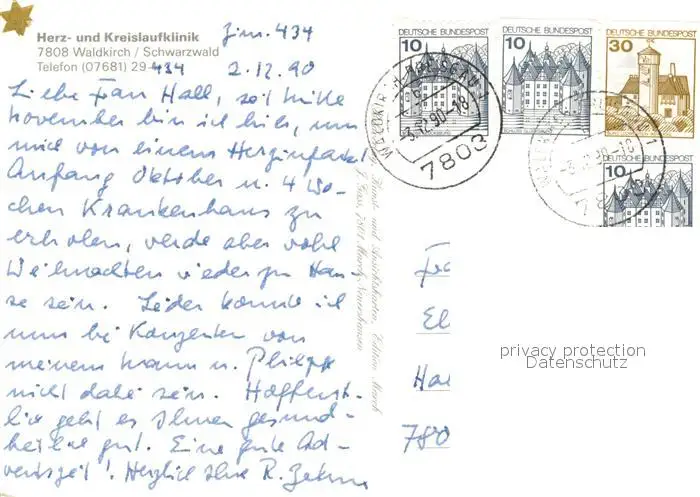 Herz- und Kreislaufklinik
7808 Waldkirch / Schwarzwald
Telefon (07681) 29-434
Zim. 434
2.12.90
Liebe Frau Hall, seit Mitte
November bin ich hier, um
mich von einem Herzinfarkt
Anfang Oktober u. 4 Wo-
chen Krankenhaus zu
erholen, werde aber wohl
Weihnachten wieder zu Hau-
se sein. Leider konnte ich
nun bei Konzerten von
meinem Mann u. Philipp
nicht dabei sein. Hoffent-
lich geht es Ihnen gesund-
heitlich gut. Eine gute Ad-
ventszeit! Herzlich Ihre R.
Kunst- und Ansichtskarten, Edition March
10 DEUTSCHE BUNDESPOST
10 DEUTSCHE BUNDESPOST
30 DEUTSCHE BUNDESPOST
10 DEUTSCHE BUNDESPOST
-3.12.90-18
7803
Fra
El
Ha
780
privacy protection
Datenschutz